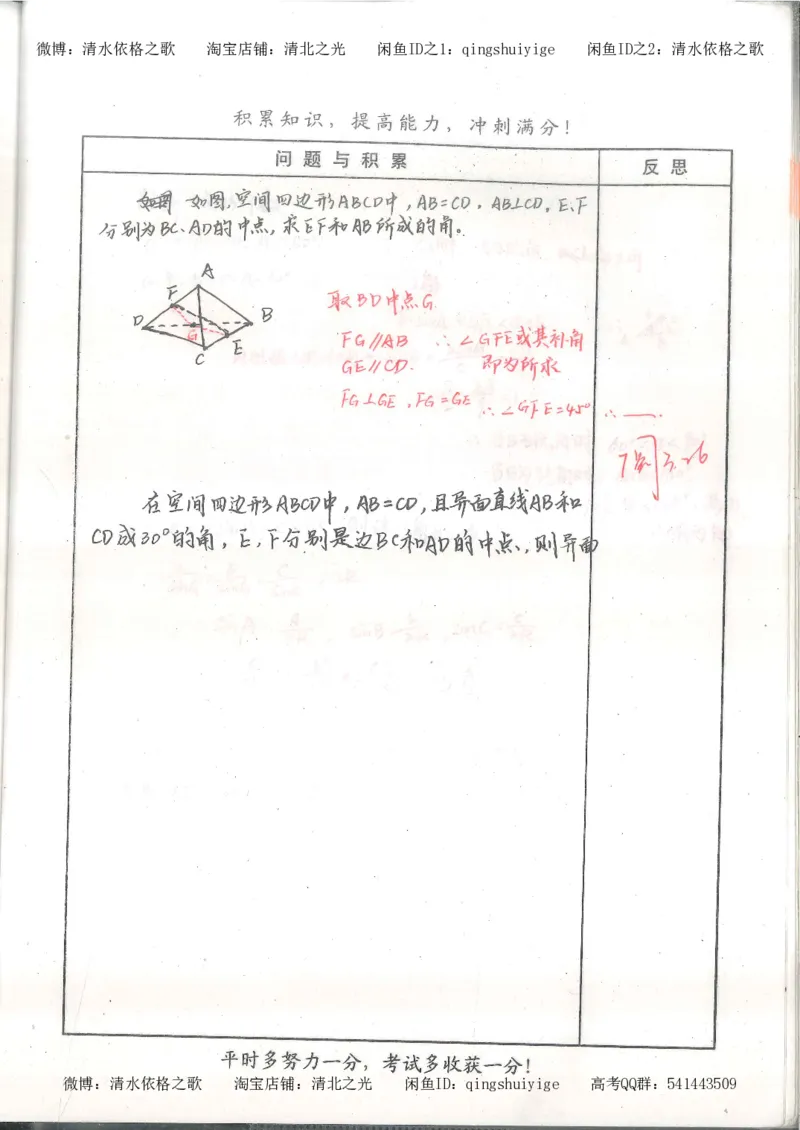 微博：清水依格之歌 淘宝店铺：清北之光 闲鱼ID之1：qingshuiyige 闲鱼ID之2：清水依格之歌
积累知识，提高能力，冲刺满分！
问题与积累 反思
如图,空间四边形ABCD中，AB=CD，AB⊥CD，E、F
分别为BC、AD的中点，求EF和AB所成的角。
A
F
D
B
G
E
C
取BD中点G.
FG∥AB ∴∠GFE或其补角
GE∥CD. 即为所求
FG⊥GE，FG=GE ∴∠GFE=45° ∴——.
3.26
在空间四边形ABCD中，AB=CD，且异面直线AB和
CD成30°的角，E，F分别是边BC和AD的中点，则异面
平时多努力一分，考试多收获一分！
微博：清水依格之歌 淘宝店铺：清北之光 闲鱼ID：qingshuiyige 高考QQ群：541443509